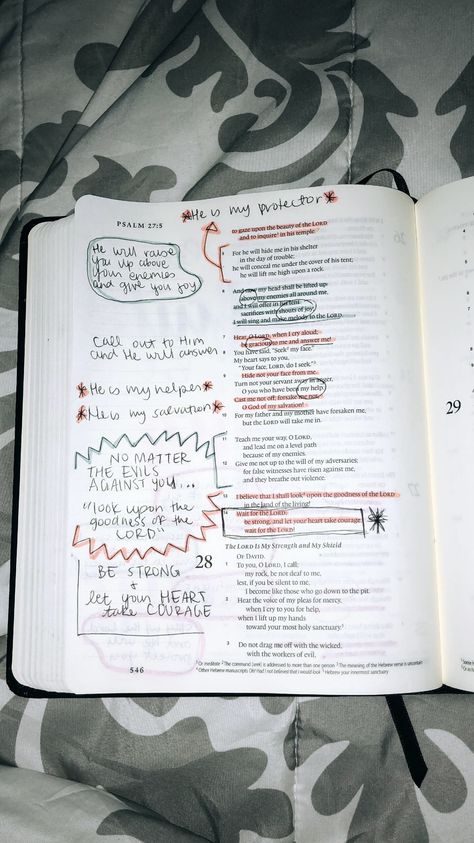 PSALM 27:5
*He is my protector*
He will raise
you up above
your enemies
and give you joy
Call out to Him
and He will answer
*He is my helper*
*He is my salvation*
NO MATTER
THE EVILS
AGAINST YOU...
"look upon the
goodness of the
LORD"
BE STRONG
+
let your HEART
take COURAGE
546
to gaze upon the beauty of the LORD
and to inquire¹ in his temple.
5 For he will hide me in his shelter
in the day of trouble;
he will conceal me under the cover of his tent;
he will lift me high upon a rock.
6 And now my head shall be lifted up
above my enemies all around me,
and I will offer in his tent
sacrifices with shouts of joy;
I will sing and make melody to the LORD.
7 Hear, O LORD, when I cry aloud;
be gracious to me and answer me!
8 You have said, "Seek² my face."
My heart says to you,
"Your face, LORD, do I seek."³
9 Hide not your face from me.
Turn not your servant away in anger,
O you who have been my help.
Cast me not off; forsake me not,
O God of my salvation!
10 For my father and my mother have forsaken me,
but the LORD will take me in.
11 Teach me your way, O LORD,
and lead me on a level path
because of my enemies.
12 Give me not up to the will of my adversaries;
for false witnesses have risen against me,
and they breathe out violence.
13 I believe that I shall look⁴ upon the goodness of the LORD
in the land of the living!
14 Wait for the LORD;
be strong, and let your heart take courage;
wait for the LORD!
The LORD Is My Strength and My Shield
OF DAVID.
28
1 To you, O LORD, I call;
my rock, be not deaf to me,
lest, if you be silent to me,
I become like those who go down to the pit.
2 Hear the voice of my pleas for mercy,
when I cry to you for help,
when I lift up my hands
toward your most holy sanctuary.⁵
3 Do not drag me off with the wicked,
with the workers of evil,
¹ Or meditate ² The command (seek) is addressed to more than one person ³ The meaning of the Hebrew verse is uncertain
⁴ Other Hebrew manuscripts Oh! Had I not believed that I would look ⁵ Hebrew your innermost sanctuary
29